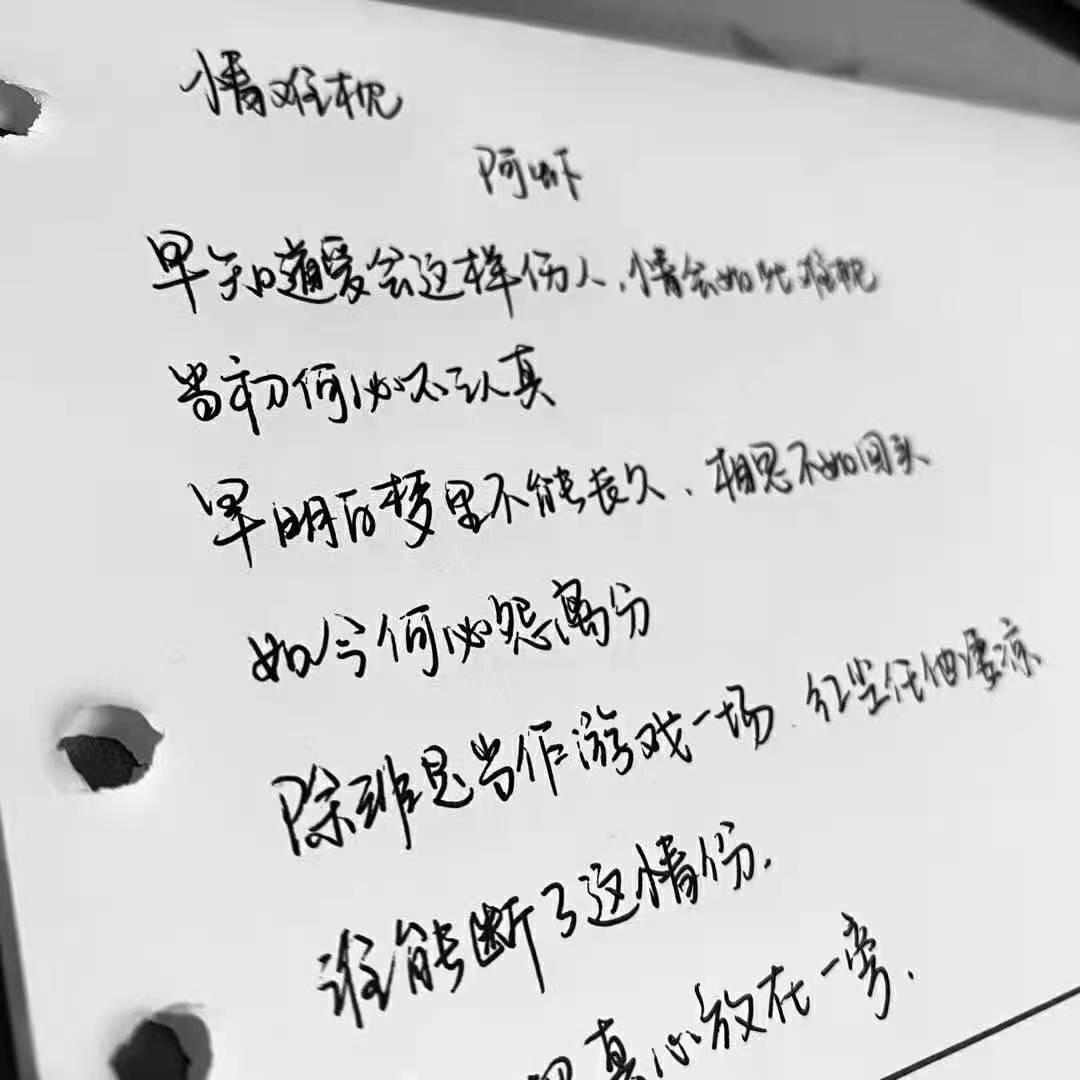 情难枕
阿虾
早知道爱会这样伤人、情会如此难枕
当初何必不认真
早明白梦里不能長久、相思不如回头
如今何必怨离分
除非是当作游戏一场、红尘任他凄凉
谁能断了这情份.
把真心放在一旁.